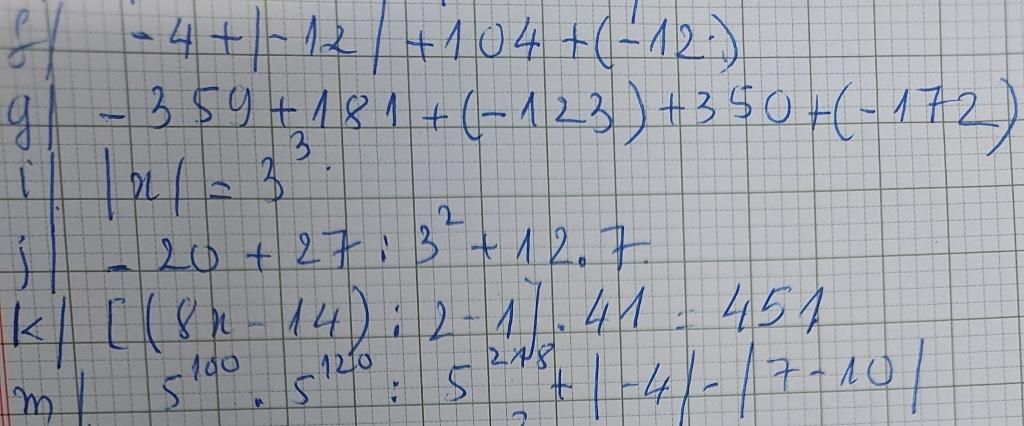 f) -4 + |-12| + 104 + (-12)
g) -359 + 181 + (-123) + 350 + (-172)
i) |x| = 3³
j) -20 + 27 : 3² + 12.7
k) [(8x - 14) : 2 - 1] . 41 = 451
m) 5¹⁰⁰ . 5¹²⁰ : 5²¹⁸ + |-4| - |7 - 10|